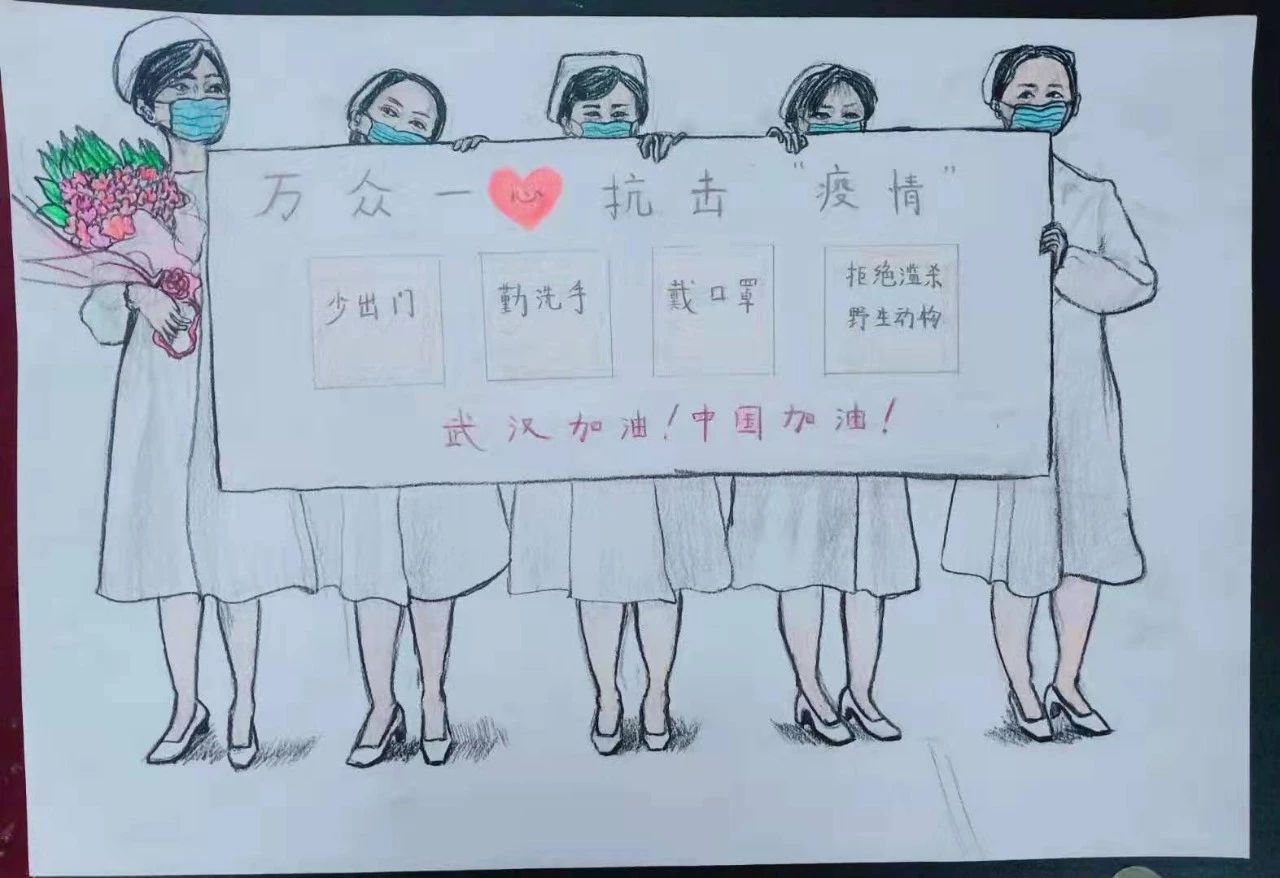 万众一心抗击“疫情”
少出门
勤洗手
戴口罩
拒绝滥杀
野生动物
武汉加油！中国加油！